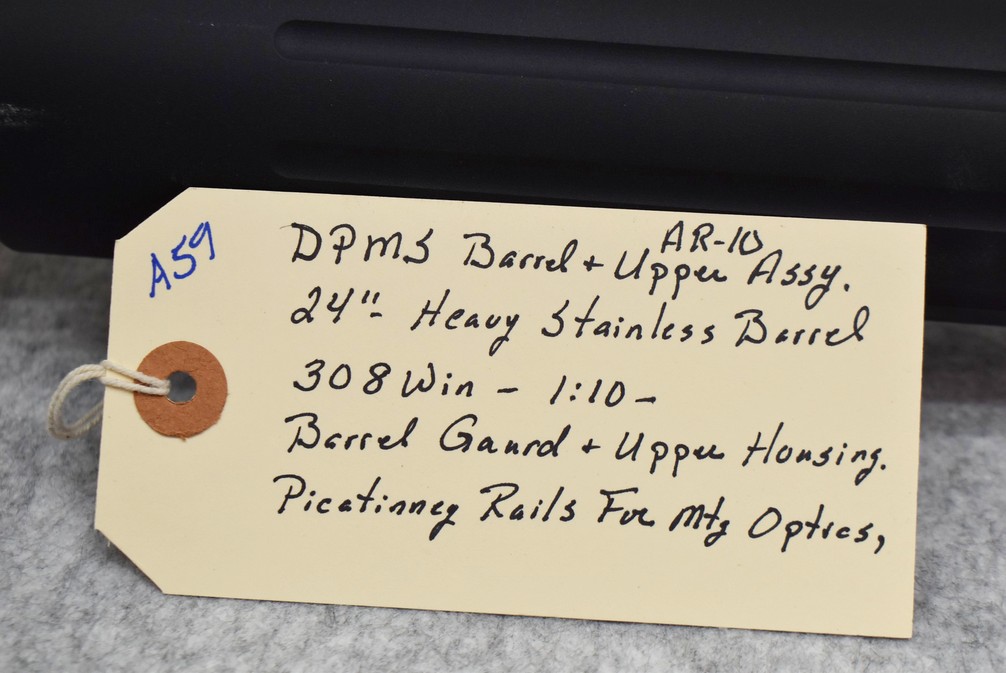 A59
DPMS Barrel + Upper AR-10 Assy.
24"- Heavy Stainless Barrel
308 Win - 1:10-
Barrel Gaurd + Upper Housing.
Picatinney Rails For Mtg Optics,